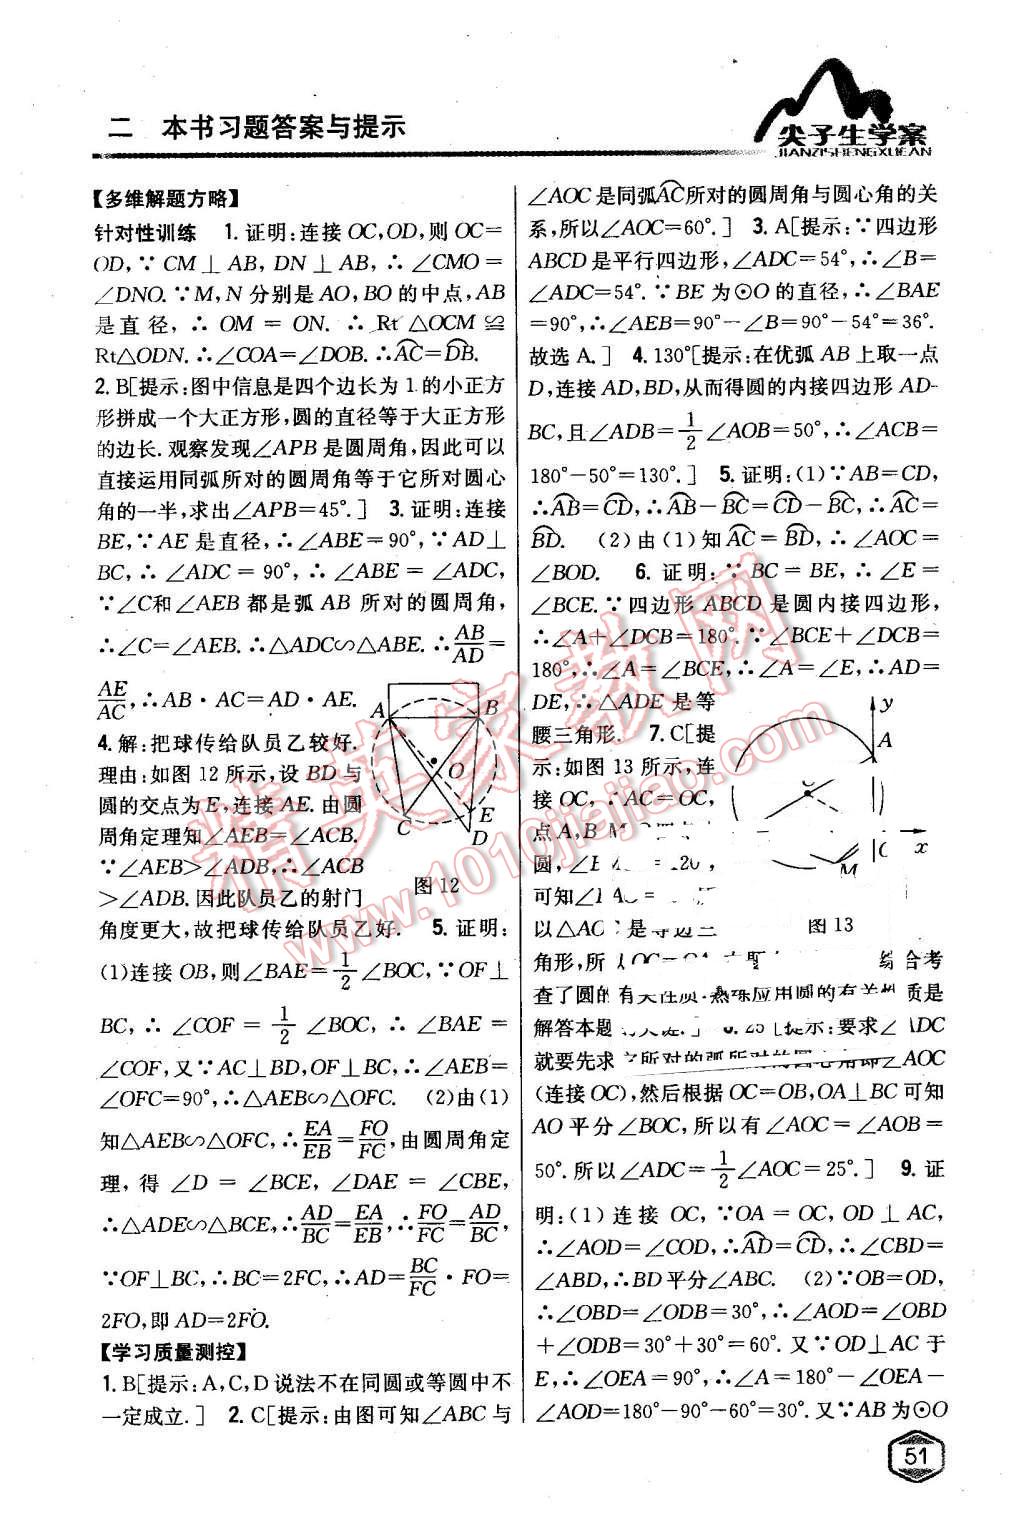 二 本书习题答案与提示
尖子生学案
JIANZISHENGXUEAN
【多维解题方略】
针对性训练 1. 证明:连接 OC,OD,则 OC=
OD,∵ CM⊥AB, DN⊥AB,∴∠CMO=
∠DNO.∵M,N 分别是 AO,BO 的中点,AB
是直径,∴ OM = ON. ∴ Rt△OCM≌
Rt△ODN.∴∠COA=∠DOB.∴A͡C=D͡B.
2. B[提示:图中信息是四个边长为 1 的小正方
形拼成一个大正方形,圆的直径等于大正方形
的边长.观察发现∠APB 是圆周角,因此可以
直接运用同弧所对的圆周角等于它所对圆心
角的一半,求出∠APB=45°.] 3. 证明:连接
BE,∵AE 是直径,∴∠ABE=90°,∵AD⊥
BC,∴∠ADC = 90°,∴∠ABE = ∠ADC,
∵∠C和∠AEB 都是弧 AB 所对的圆周角,
∴∠C=∠AEB.∴△ADC∽△ABE.∴AB/AD=
AE/AC,∴AB·AC=AD·AE.
4. 解:把球传给队员乙较好.
理由:如图 12 所示,设 BD 与
圆的交点为 E,连接 AE.由圆
周角定理知∠AEB=∠ACB.
∵∠AEB>∠ADB,∴∠ACB
>∠ADB.因此队员乙的射门
A B O C E D
图 12
角度更大,故把球传给队员乙好. 5. 证明:
(1)连接 OB,则∠BAE=1/2∠BOC,∵OF⊥
BC,∴∠COF = 1/2 ∠BOC,∴∠BAE =
∠COF,又∵AC⊥BD,OF⊥BC,∴∠AEB=
∠OFC=90°,∴△AEB∽△OFC. (2)由(1)
知△AEB∽△OFC,∴EA/EB=FO/FC,由圆周角定
理,得 ∠D = ∠BCE, ∠DAE = ∠CBE,
∴△ADE∽△BCE,∴AD/BC=EA/EB,∴FO/FC=AD/BC,
∵OF⊥BC,∴BC=2FC,∴AD=BC/FC·FO=
2FO,即 AD=2FO.
【学习质量测控】
1. B[提示:A,C,D 说法不在同圆或等圆中不
一定成立.] 2. C[提示:由图可知∠ABC 与
∠AOC 是同弧A͡C所对的圆周角与圆心角的关
系,所以∠AOC=60°.] 3. A[提示:∵四边形
ABCD 是平行四边形,∠ADC=54°,∴∠B=
∠ADC=54°.∵BE 为⊙O 的直径,∴∠BAE
=90°,∴∠AEB=90°-∠B=90°-54°=36°.
故选 A.] 4. 130°[提示:在优弧 AB 上取一点
D,连接 AD,BD,从而得圆的内接四边形 AD-
BC,且∠ADB=1/2∠AOB=50°,∴∠ACB=
180°-50°=130°.] 5. 证明:(1)∵AB=CD,
∴A͡B=C͡D,∴A͡B-B͡C=C͡D-B͡C,∴A͡C=
B͡D. (2)由(1)知A͡C=B͡D,∴∠AOC=
∠BOD. 6. 证明:∵BC=BE,∴∠E=
∠BCE.∵四边形 ABCD 是圆内接四边形,
∴∠A+∠DCB=180°.∵∠BCE+∠DCB=
180°,∴∠A=∠BCE,∴∠A=∠E,∴AD=
DE,∴△ADE 是等
腰三角形. 7. C[提
示:如图 13 所示,连
接 OC,∴AC=OC,
点 A,B
圆,∠
可知∠
以△AOC 是等边三
y A C M x
图 13
角形,所以OC=OA 综合考
查了圆的有关性质.熟练应用圆的有关性质是
解答本题的关键.] 8. 25°[提示:要求∠ADC
就要先求它所对的弧所对的圆心角即∠AOC
(连接 OC),然后根据 OC=OB,OA⊥BC 可知
AO 平分∠BOC,所以有∠AOC=∠AOB=
50°.所以∠ADC=1/2∠AOC=25°.] 9. 证
明:(1)连接 OC,∵OA=OC,OD⊥AC,
∴∠AOD=∠COD,∴A͡D=C͡D,∴∠CBD=
∠ABD,∴BD平分∠ABC. (2)∵OB=OD,
∴∠OBD=∠ODB=30°,∴∠AOD=∠OBD
+∠ODB=30°+30°=60°.又∵OD⊥AC 于
E,∴∠OEA=90°,∴∠A=180°-∠OEA-
∠AOD=180°-90°-60°=30°.又∵AB 为⊙O
51
精英家教网
www.1010jiajiao.com